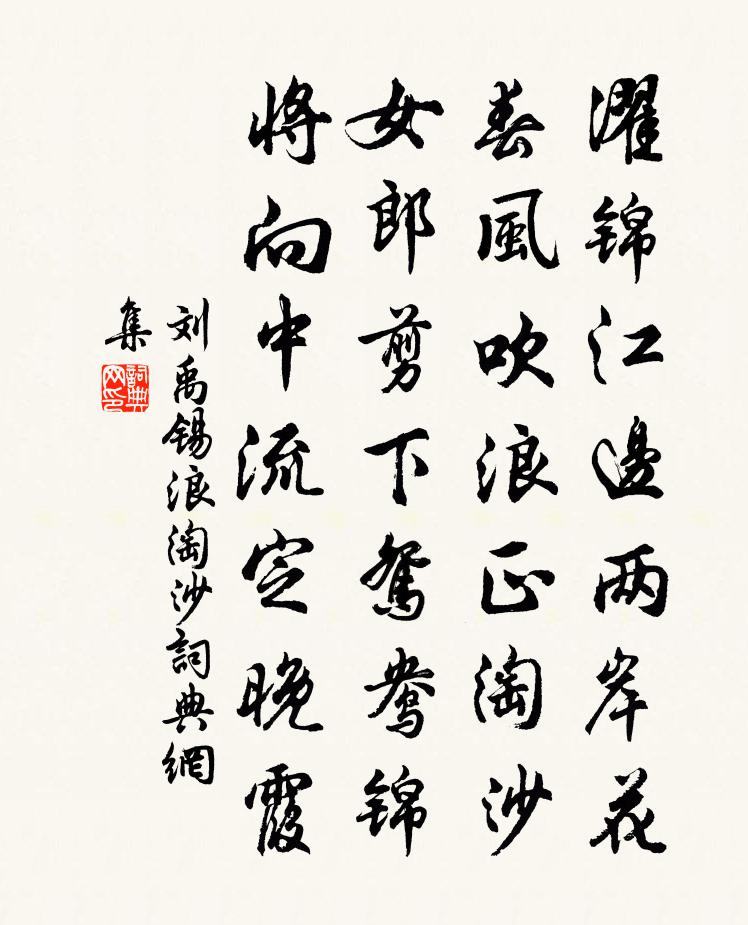 濯锦江邊两岸花
春風吹浪正淘沙
女郎剪下鴛鴦锦
将向中流定晚霞
刘禹锡浪淘沙詞典網
集
詞典网印